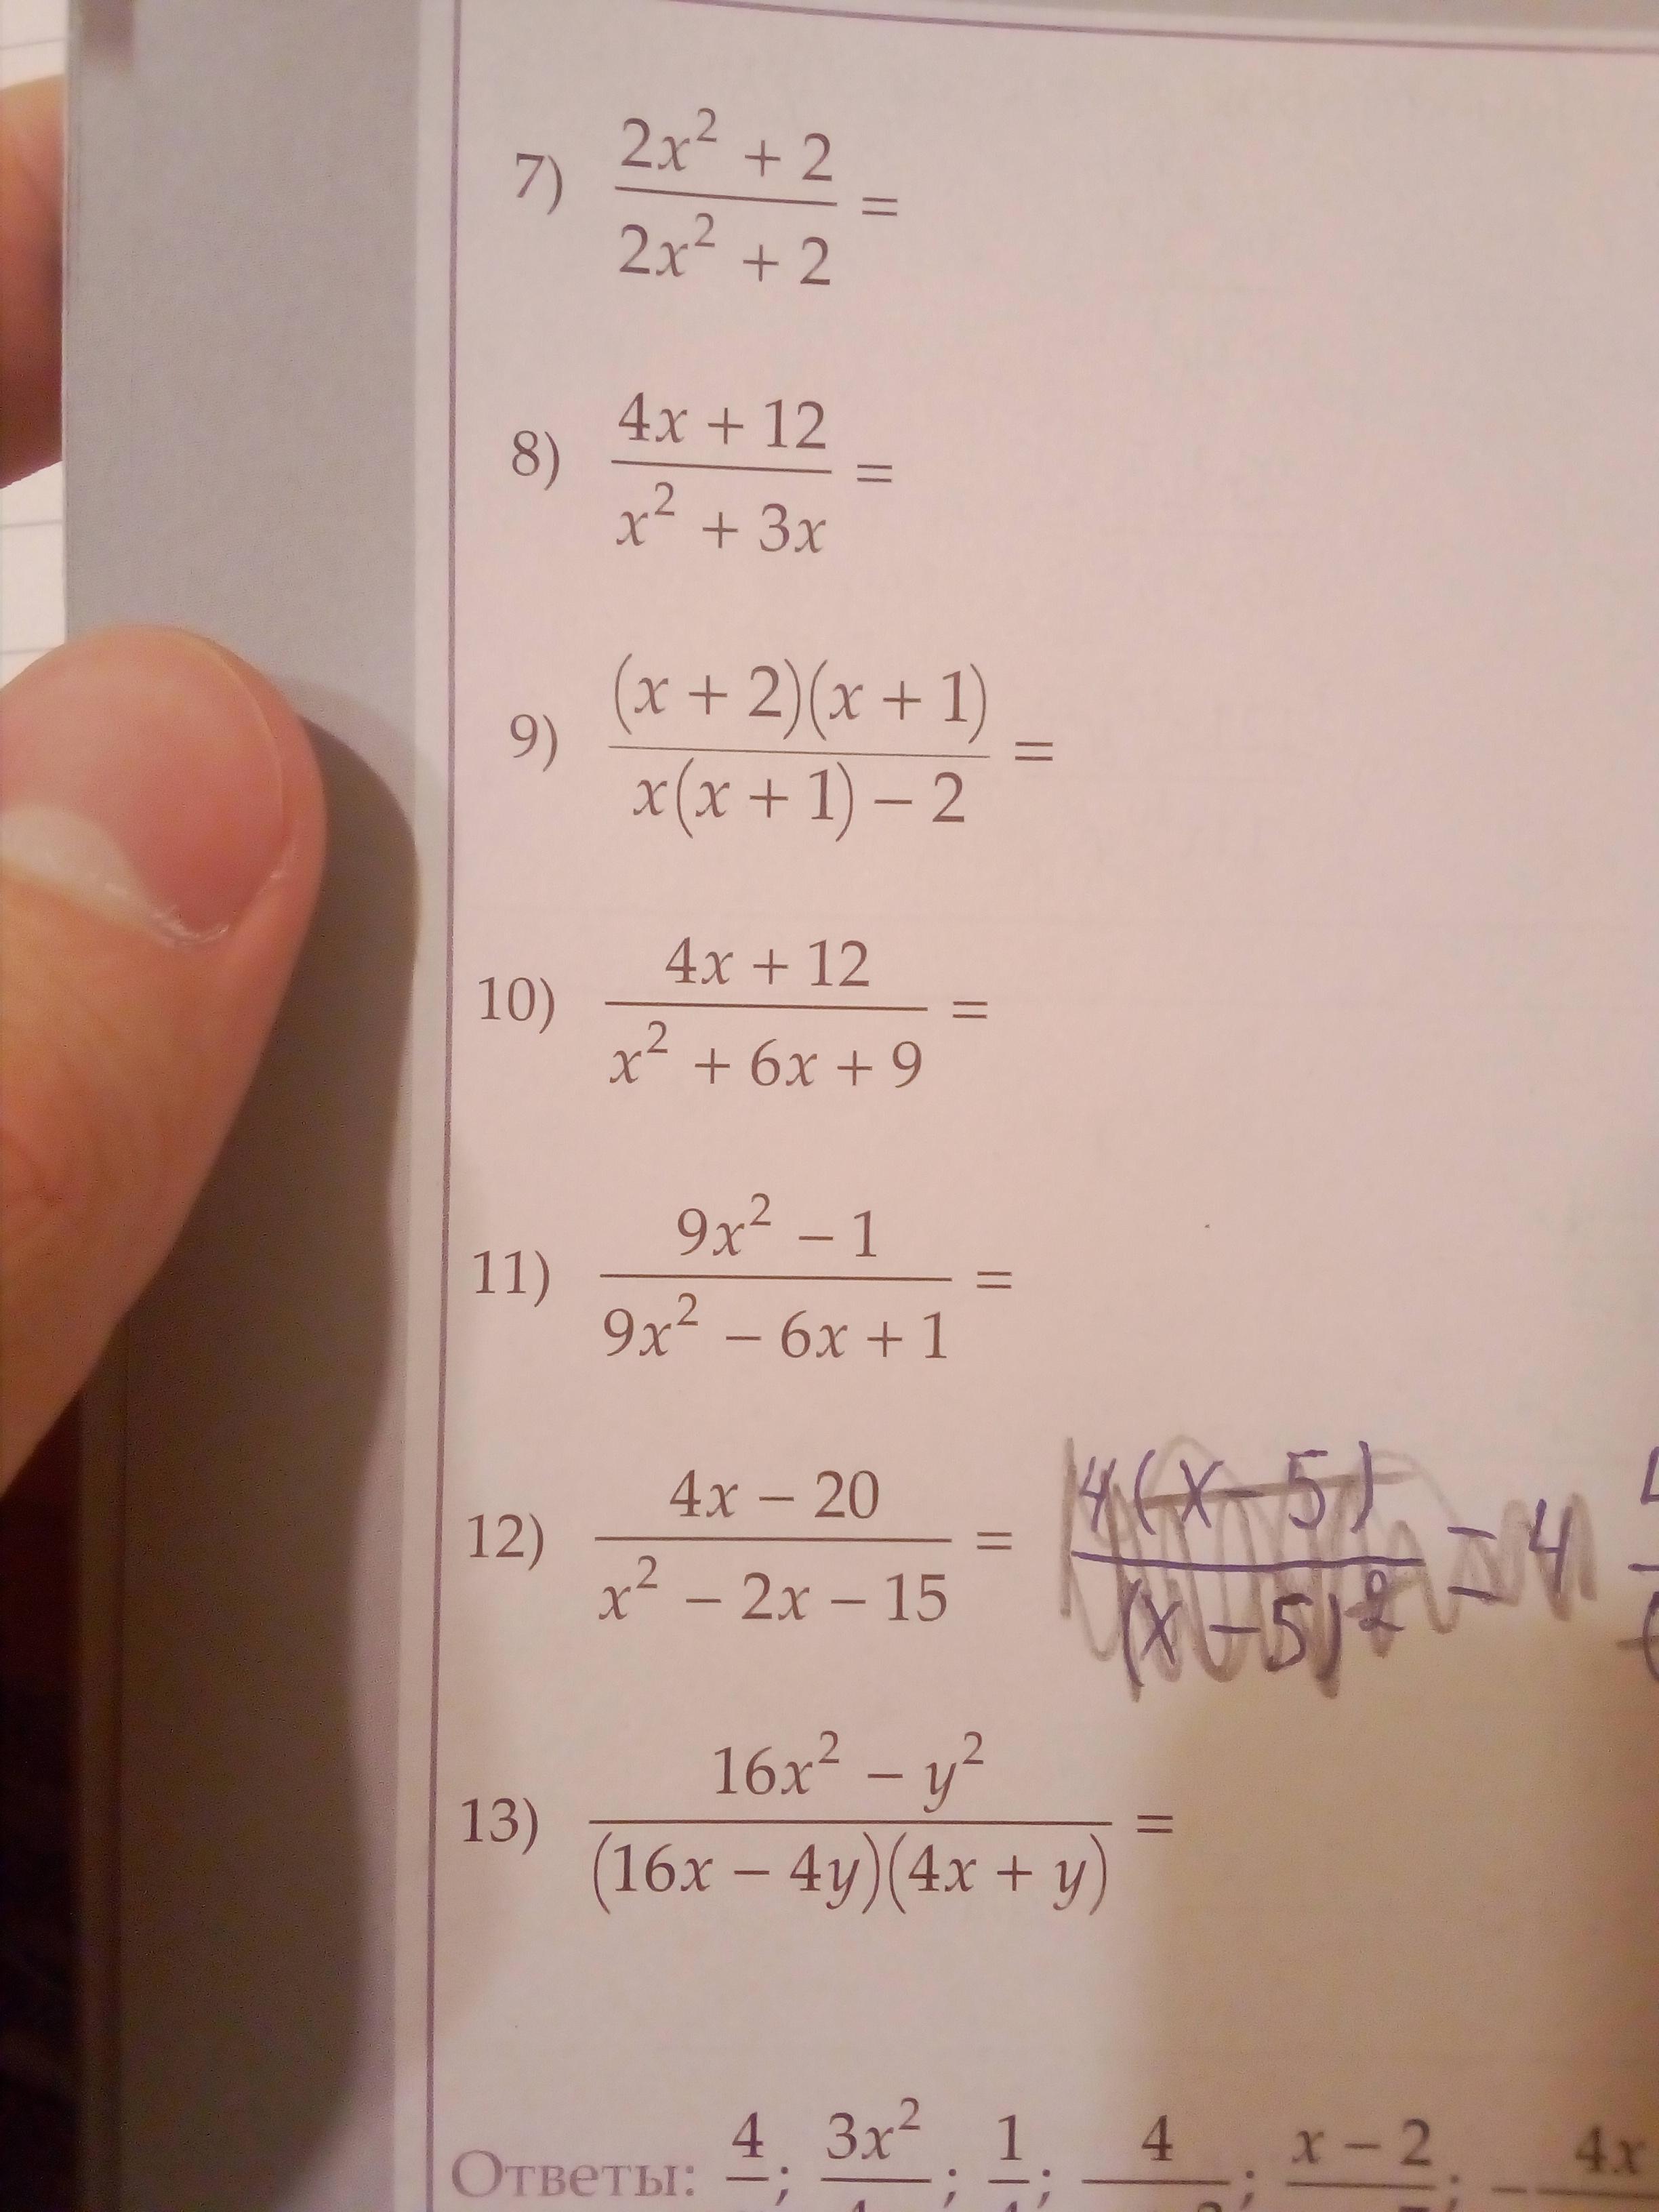 7) (2x² + 2)/(2x² + 2) =
8) (4x + 12)/(x² + 3x) =
9) ((x + 2)(x + 1))/(x(x + 1) − 2) =
10) (4x + 12)/(x² + 6x + 9) =
11) (9x² − 1)/(9x² − 6x + 1) =
12) (4x − 20)/(x² − 2x − 15) = (4(x − 5))/((x − 5)²) = 4
13) (16x² − y²)/((16x − 4y)(4x + y)) =
Ответы: 4 ; 3x² ; 1 ; 4 ; x − 2 ; − 4x